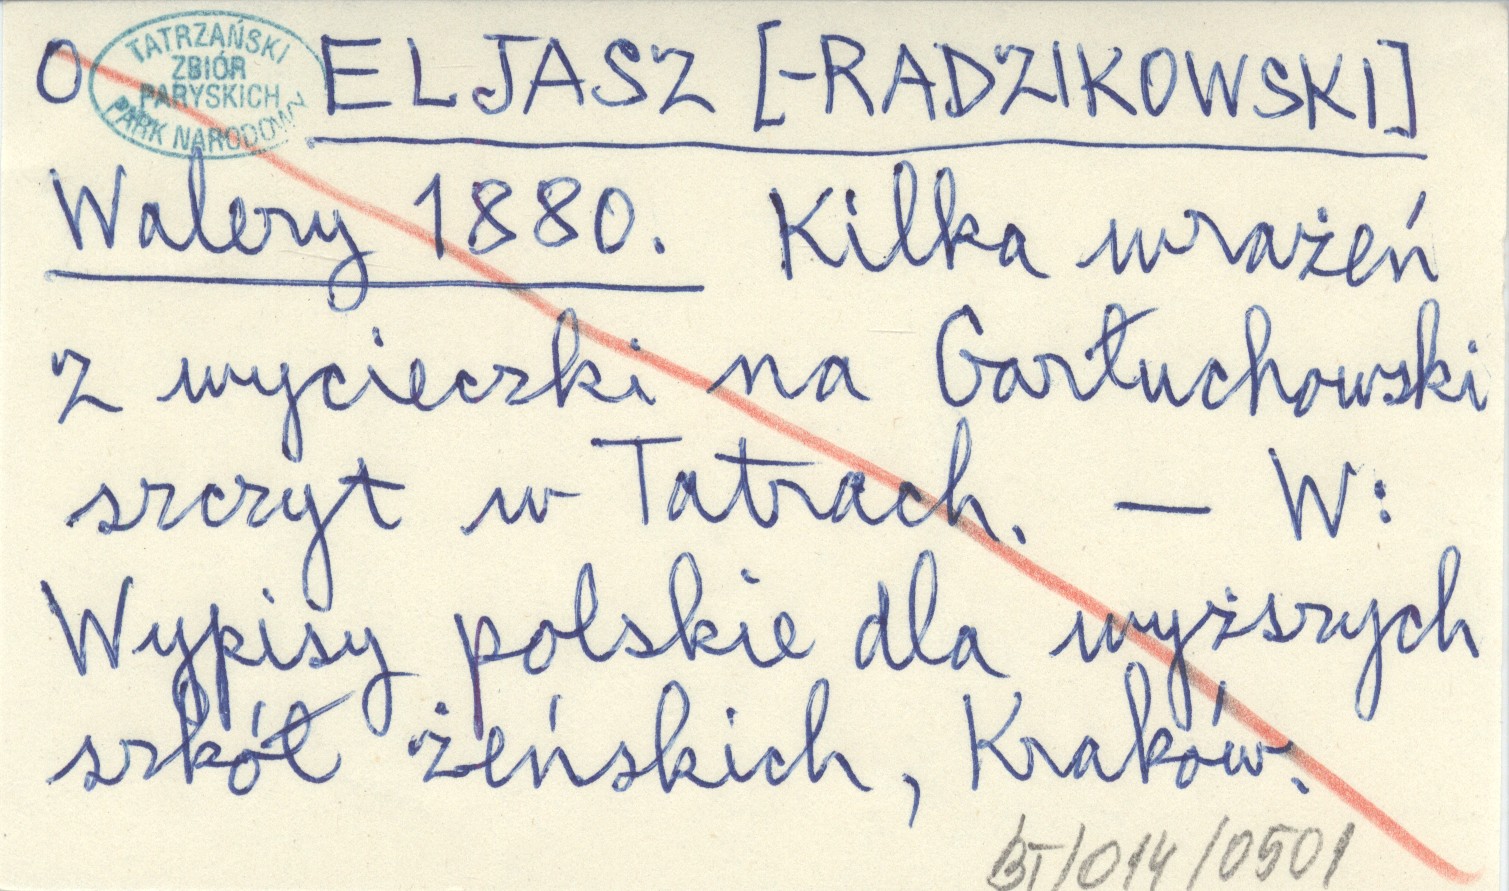 O TATRZAŃSKI ZBIÓR PARYSKICH PARK NARODOWY ELJASZ [-RADZIKOWSKI]
Walery 1880. Kilka wrażeń
z wycieczki na Garłuchowski
szczyt w Tatrach. — W:
Wypisy polskie dla wyższych
szkół żeńskich, Kraków.
BT/014/0501